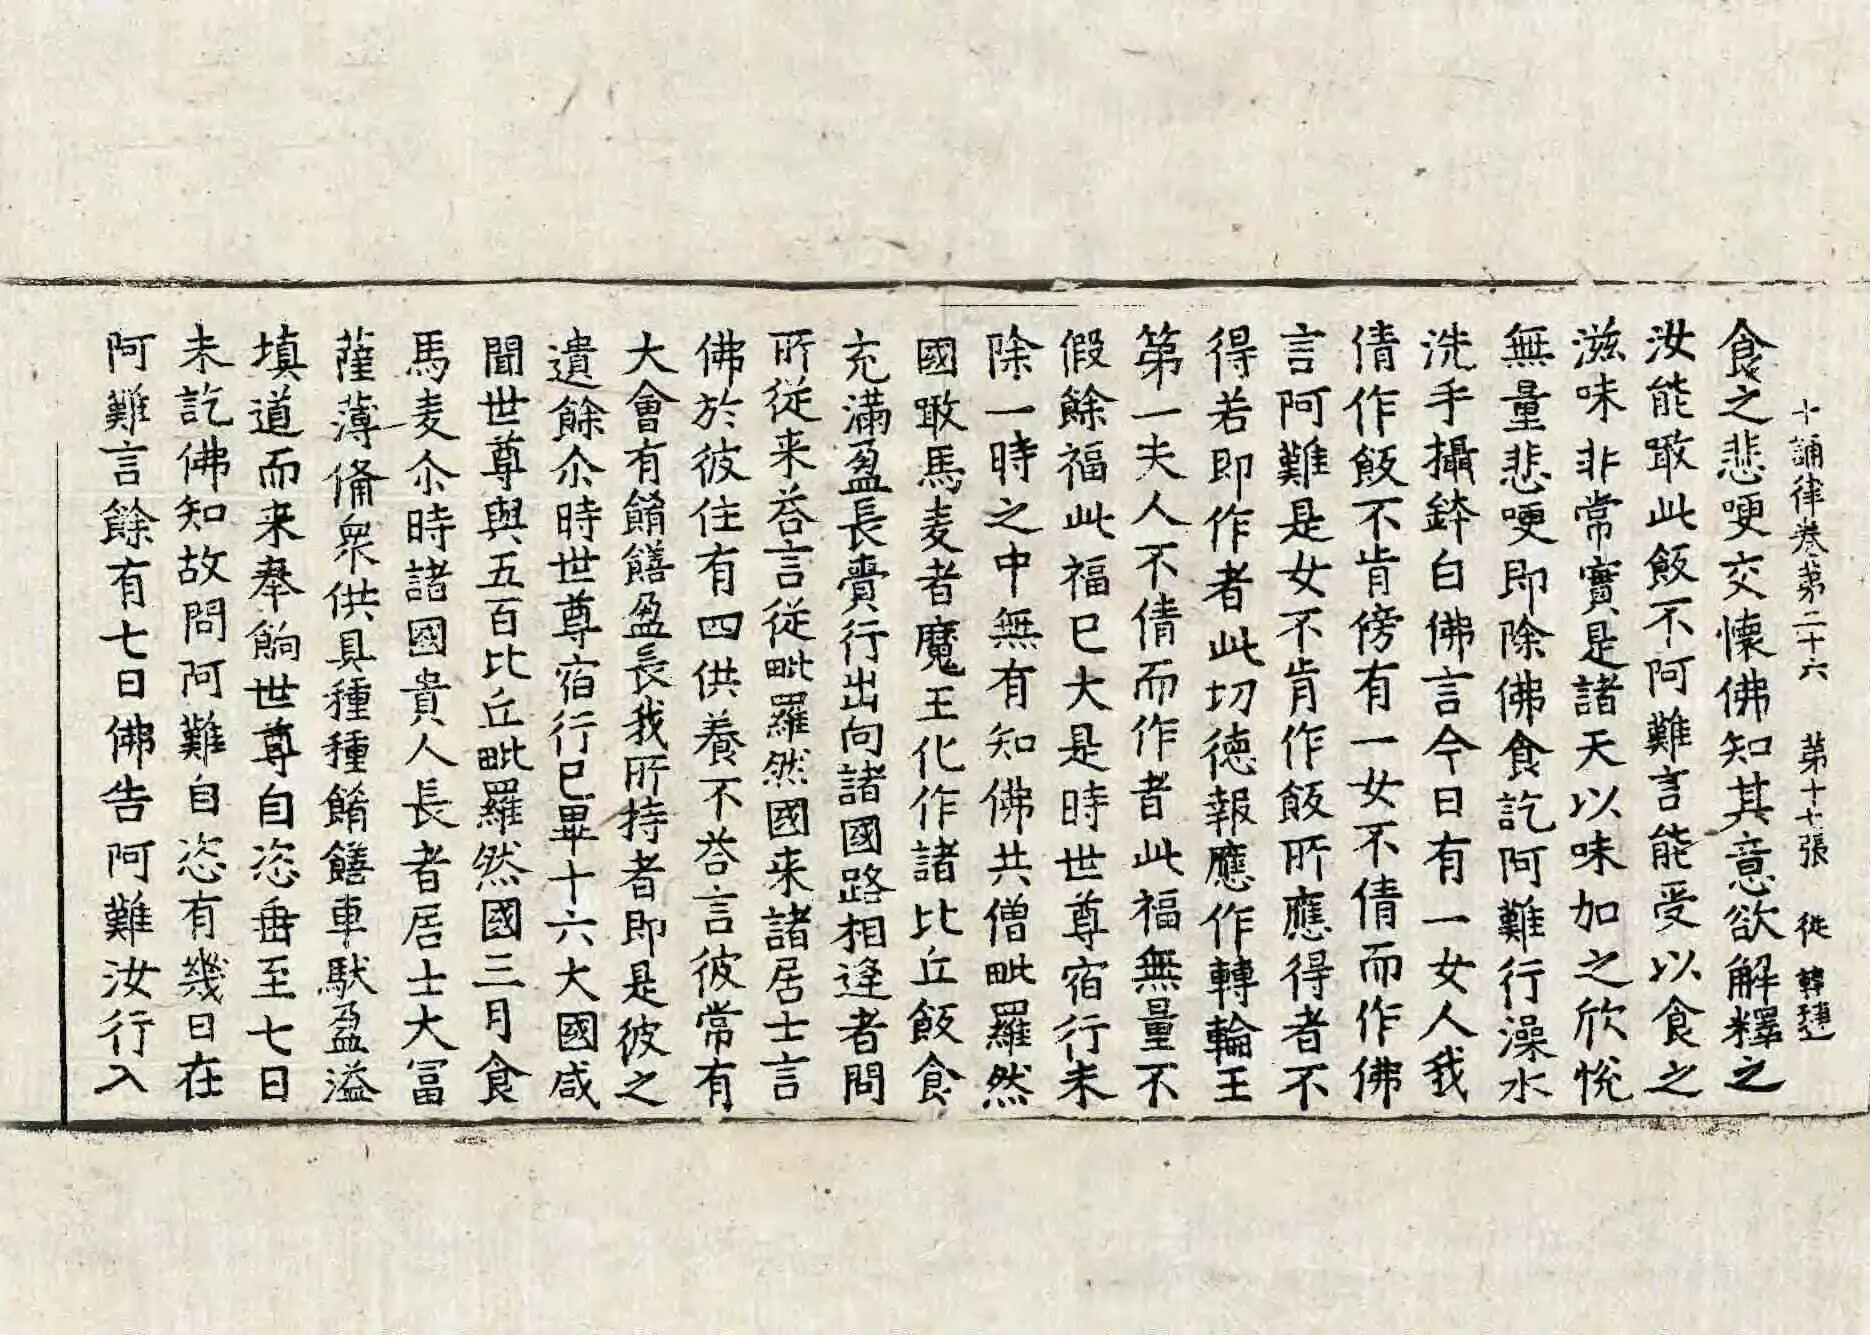 十誦律卷第二十六 第十七張 從
食之悲哽交懷佛知其意欲解釋之
汝能噉此飯不阿難言能受以食之
滋味非常實是諸天以味加之欣悅
無量悲哽即除佛食訖阿難行澡水
洗手攝鉢白佛言今日有一女人我
倩作飯不肯傍有一女不倩而作佛
言阿難是女不肯作飯所應得者不
得若即作者此切德報應作轉輪王
第一夫人不倩而作者此福無量不
假餘福此福已大是時世尊宿行未
除一時之中無有知佛共僧毗羅然
國噉馬麦者魔王化作諸比丘飯食
充滿盈長賷行出向諸國路相逢者問
所從来荅言從毗羅然國来諸居士言
佛於彼住有四供養不荅言彼常有
大會有餚饍盈長我所持者即是彼之
遺餘尒時世尊宿行已畢十六大國咸
聞世尊與五百比丘毗羅然國三月食
馬麦尒時諸國貴人長者居士大冨
薩薄俻衆供具種種餚饍車䭾盈溢
填道而来奉餉世尊自恣垂至七日
未訖佛知故問阿難自恣有幾日在
阿難言餘有七日佛告阿難汝行入